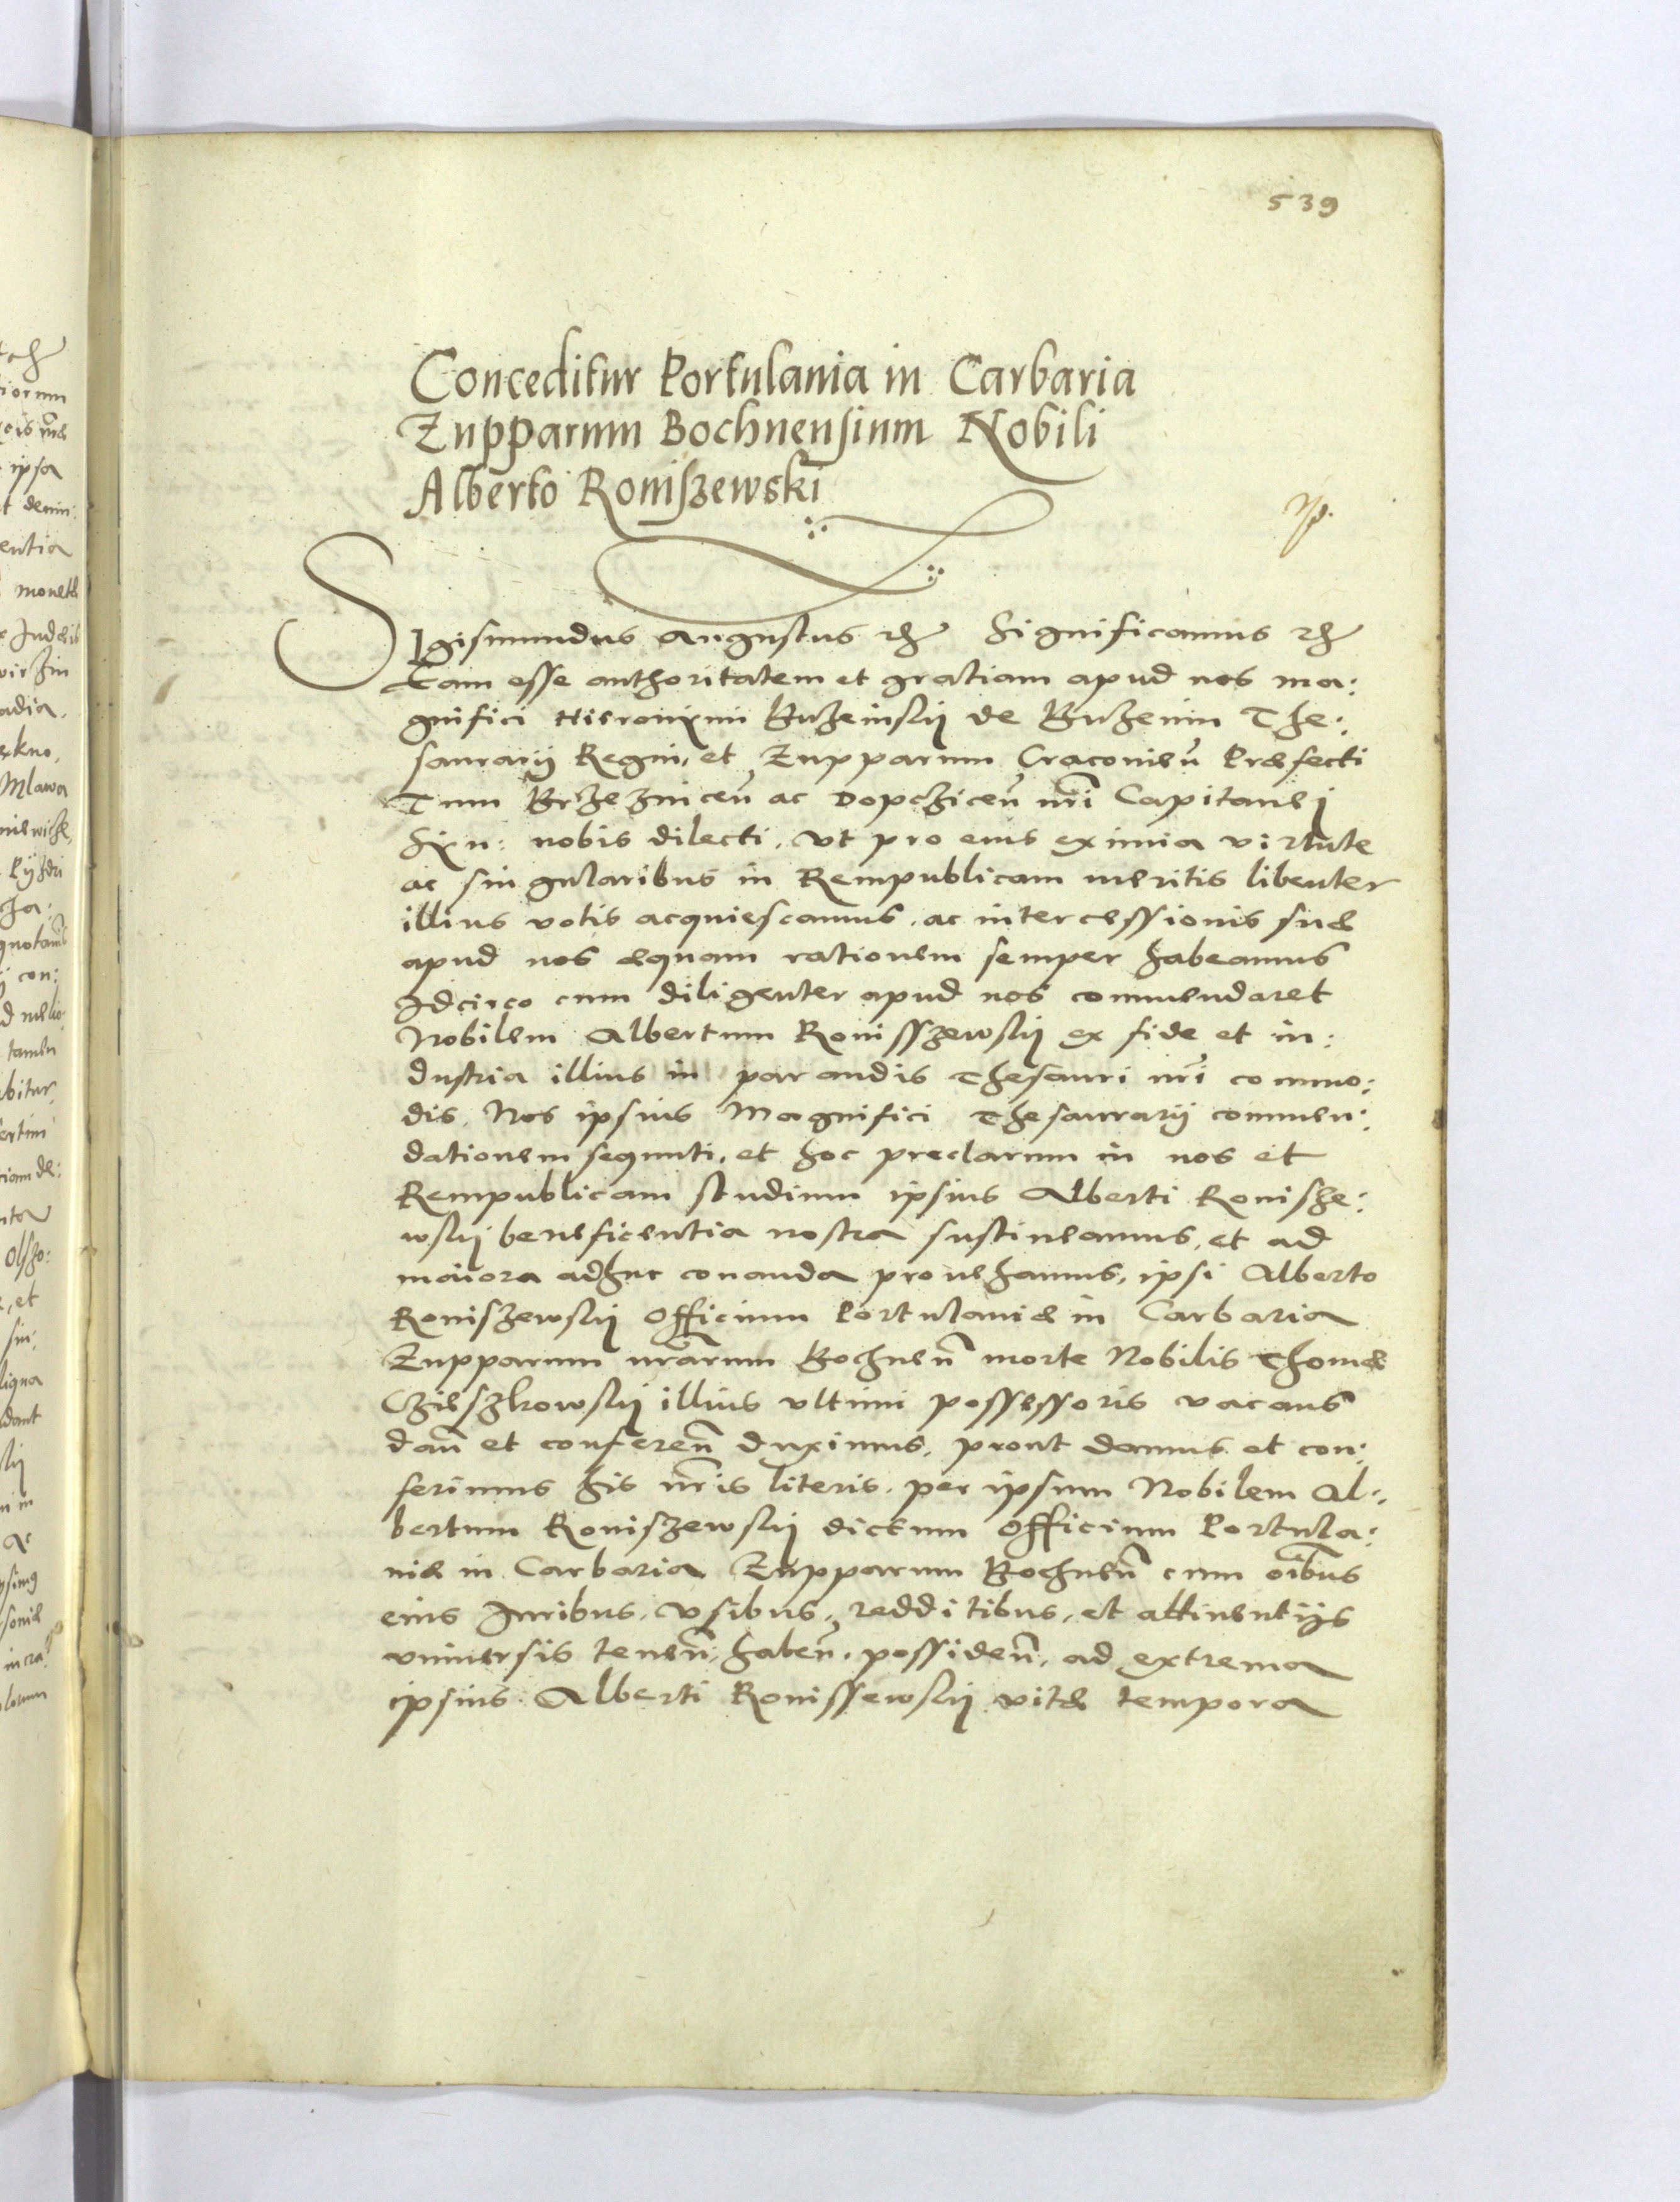 539
Conceditur Portulania in Carbaria
Zupparum Bochnensium Nobili
Alberto Roniszewski
Sigismundus Augustus etc Significamus etc
Eam esse authoritatem et gratiam apud nos ma:
gnifici Hieronimi Buzeinskij de Buzenin The:
saurarij Regni, et Zupparum Cracovieñ Præfecti
Tum Brzezniceñ ac Dopcziceñ nr̃i Capitanej
Syn: nobis dilecti, Vt pro eius eximia virtute
ac singularibus in Rempublicam meritis libenter
illius votis acquiescamus, ac intercessionis suæ
apud nos æquam rationem semper habeamus
Idcirco cum diligenter apud nos commendaret
Nobilem Albertum Ronisszewskij ex fide et in:
dustria illius in parandis Thesauri nr̃i commo:
dis, Nos ipsius Magnifici Thesaurarij commen:
dationem sequuti, et hoc preclarum in nos et
Rempublicam studium ipsius Alberti Ronisze:
wskij beneficentia nostra sustineamus, et ad
maiora adhuc conanda provehamus, ipsi Alberto
Roniszewskij Officium Portulaniæ in Carbaria
Zupparum nr̃arum Bochneñ morte Nobilis Thomæ
Czieszkowskij illius vltimi possessoris vacans
dañ et confereñ duximus, prout damus et con:
ferimus his nr̃is literis, per ipsum Nobilem Al:
bertum Roniszewskij dictum Officium Portula:
niæ in Carbaria Zupparum Bochneñ cum oĩbus
eius Iuribus, Vsibus, redditibus, et attinentijs
vniversis teneñ, habeñ, possideñ, ad extrema
ipsius Alberti Ronissewskij vitæ tempora